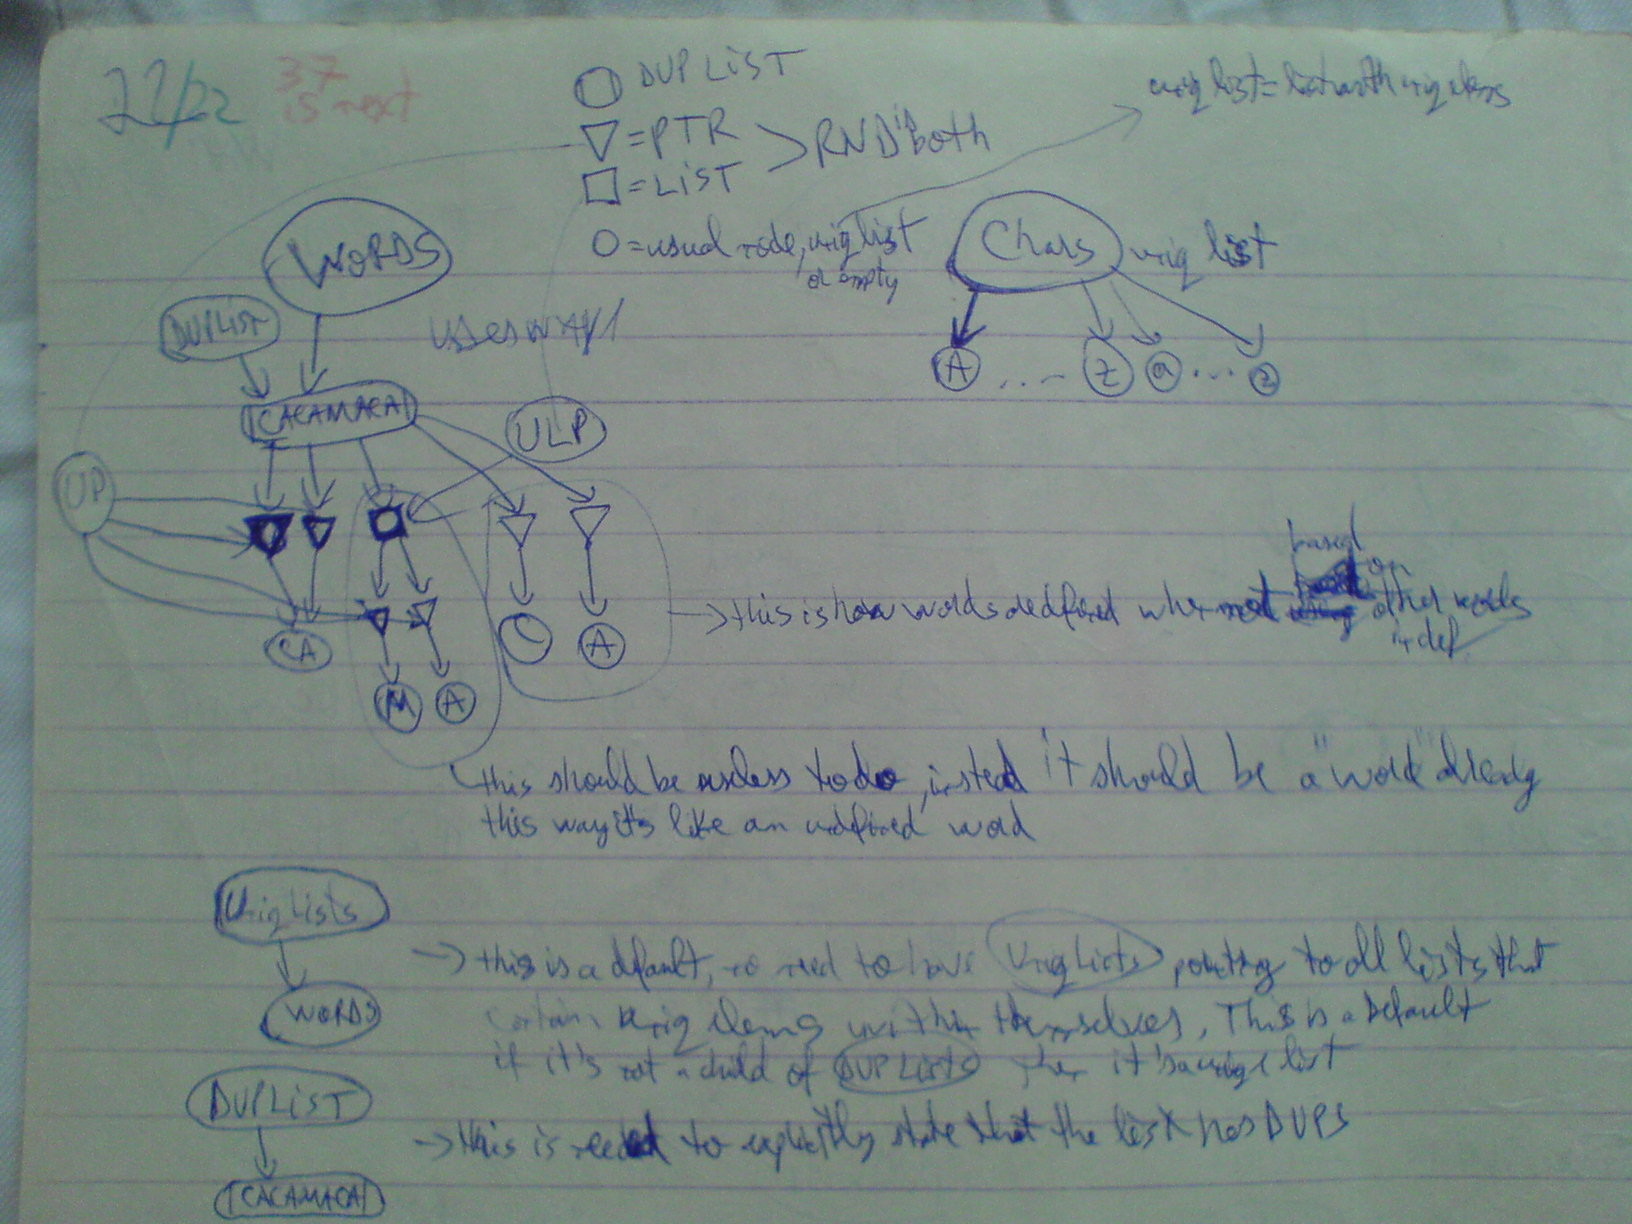 22/22
37
is next
DUPLIST
▽=PTR
□=LIST
>RND both
O=usual node, uniq list
or empty
uniq list=list with uniq elems
WORDS
DUPLIST
Chars
uniq list
A ... Z a ... z
|CACAMACA|
ULP
UP
CA
C
A
M
A
→this is how words are defined when not
based on
other words
in def
this should be useless todo, instead it should be a "word" already
this way it's like an undefined word
UniqLists
WORDS
→this is a default, no need to have UniqLists pointing to all lists that
contain uniq elems within themselves, This is a Default
if it's not a child of DUPLists then it's a uniqe list
DUPLIST
→this is needed to explicitly state that the list has DUPS
|CACAMACA|